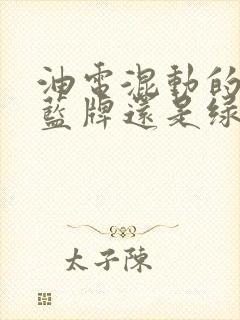 油電混動的
藍牌還是綠
太子陳